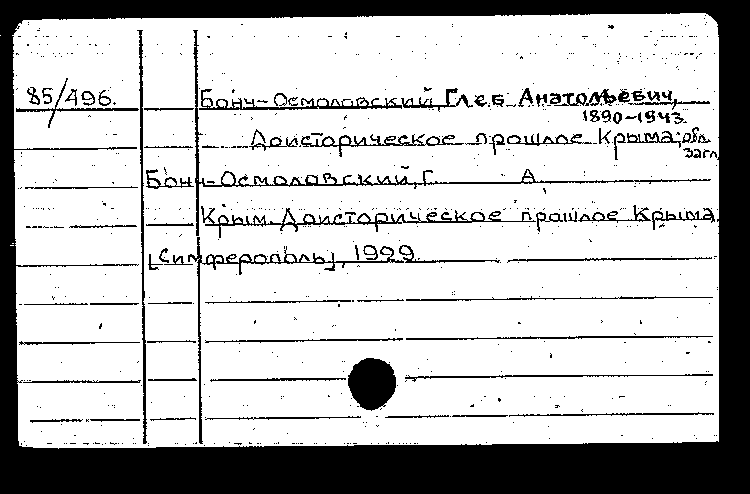 85/496.
Бонч-Осмоловский, Глеб Анатольевич,
1890-1943.
Доисторическое прошлое Крыма; обл.
загл.
Бонч-Осмоловский, Г. А.
Крым. Доисторическое прошлое Крыма.
[Симферополь], 1929.